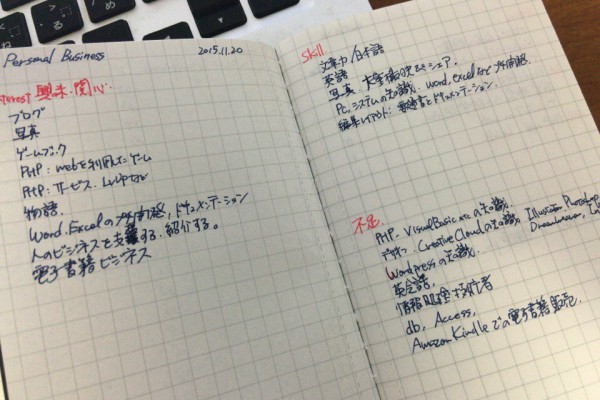 Personal Business 2015.11.20
Interest 興味・関心
ブログ
写真
ゲームブック
PHP:webを利用したゲーム
PHP:サービス、
物語
Word、Excelの ドキュメンテーション
人のビジネスを支援する。紹介する。
電子書籍ビジネス
Skill
文章力/日本語
英語
写真
PC、システムの知識、word,excelなど
編集レイアウト: とドキュメンテーション、
不足
PHP、VisualBasic etcの知識
デザイン、Creative Cloudの知識、Illustrator Photoshop
Dreamweaver,
Wordpressの知識
英会話、
情報処理技術者
db、Access、
Amazon Kindleでの電子書籍販売、